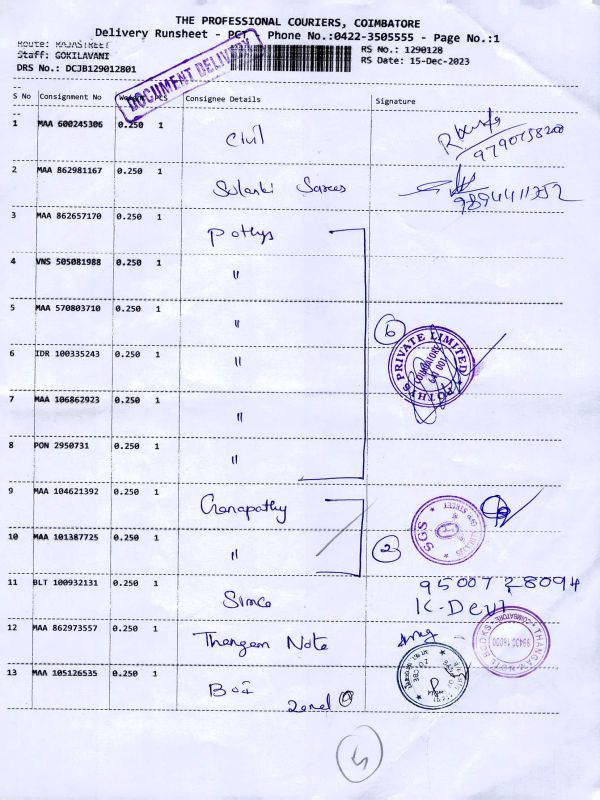 THE PROFESSIONAL COURIERS, COIMBATORE
Delivery Runsheet - PCT Phone No.:0422-3505555 - Page No.:1
Route: RAJASTREET
RS No.: 1290128
Staff: GOKILAVANI
RS Date: 15-Dec-2023
DRS No.: DCJB129012801
DOCUMENT DELIVERY
S No Consignment No PCS Consignee Details Signature
1 MAA 600245306 0.250 1 Civil
2 MAA 862981167 0.250 1 Solanki Sarees
3 MAA 862657170 0.250 1 Pothys
4 VNS 505081988 0.250 1 "
5 MAA 570803710 0.250 1 "
6 IDR 100335243 0.250 1 "
6
POTHYS PRIVATE LIMITED COIMBATORE 641 001
7 MAA 106862923 0.250 1 "
8 PON 2950731 0.250 1 "
9 MAA 104621392 0.250 1 Ganapathy
10 MAA 101387725 0.250 1 "
2
SGS
11 BLT 100932131 0.250 1 Simco
95007 28094
K-Devi
12 MAA 862973557 0.250 1 Thangam Note
THANGAM NOTE BOOKS COIMBATORE
13 MAA 105126535 0.250 1 BOI